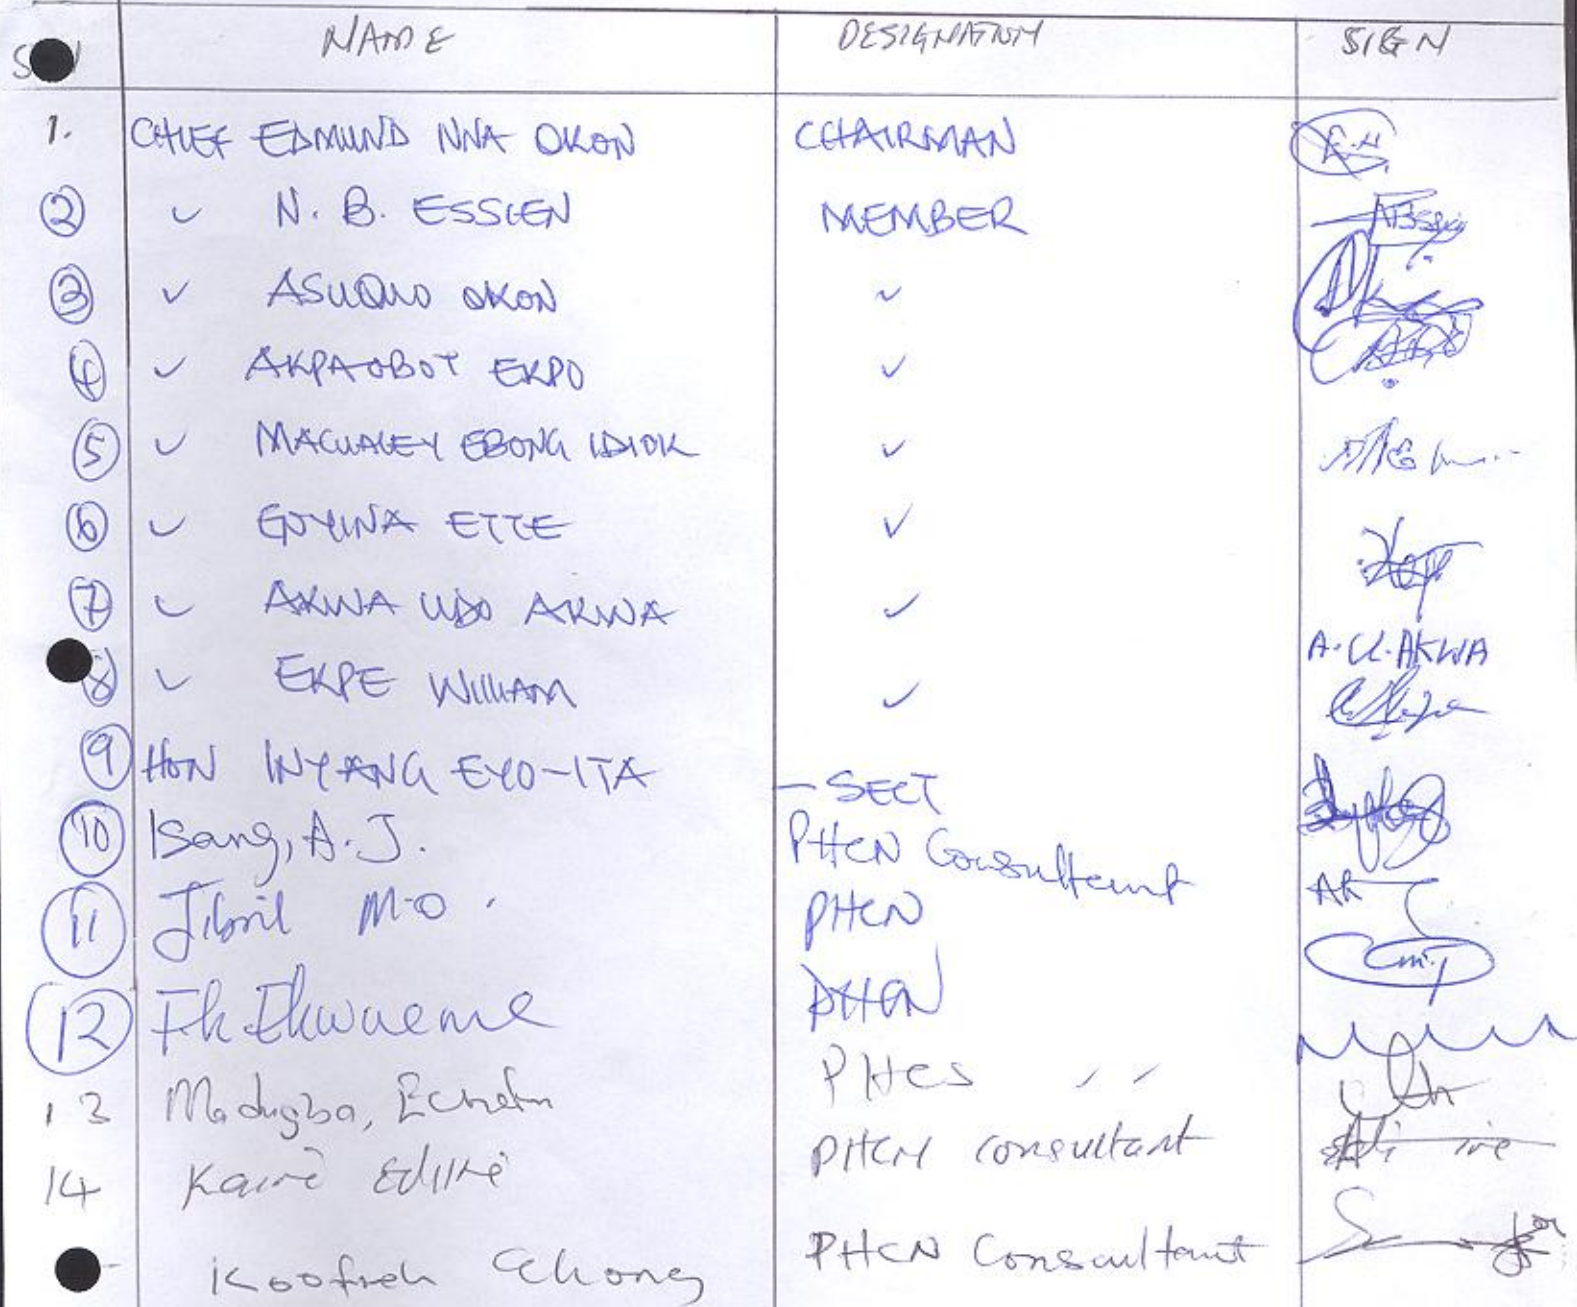 S/N NAME DESIGNATION SIGN
1. CHIEF EDMUND NNA OKON CHAIRMAN
2 ✓ N. B. ESSIEN MEMBER
3 ✓ ASUQUO OKON ✓
4 ✓ AKPAOBOT EKPO ✓
5 ✓ MACAULEY EBONG IDIOK ✓
6 ✓ ETTE ✓
7 ✓ AKWA UDO AKWA ✓ A.U.AKWA
8 ✓ EKPE WILLIAM ✓
9 HON INYANG EYO-ITA - SECT
10 Isang, A. J. PHCN Consultant
11 Jibril M.O. PHCN
12 Ekwueme PHCN
13 Madugba, PHCS
14 PHCN consultant
Koofreh Ekong PHCN Consultant